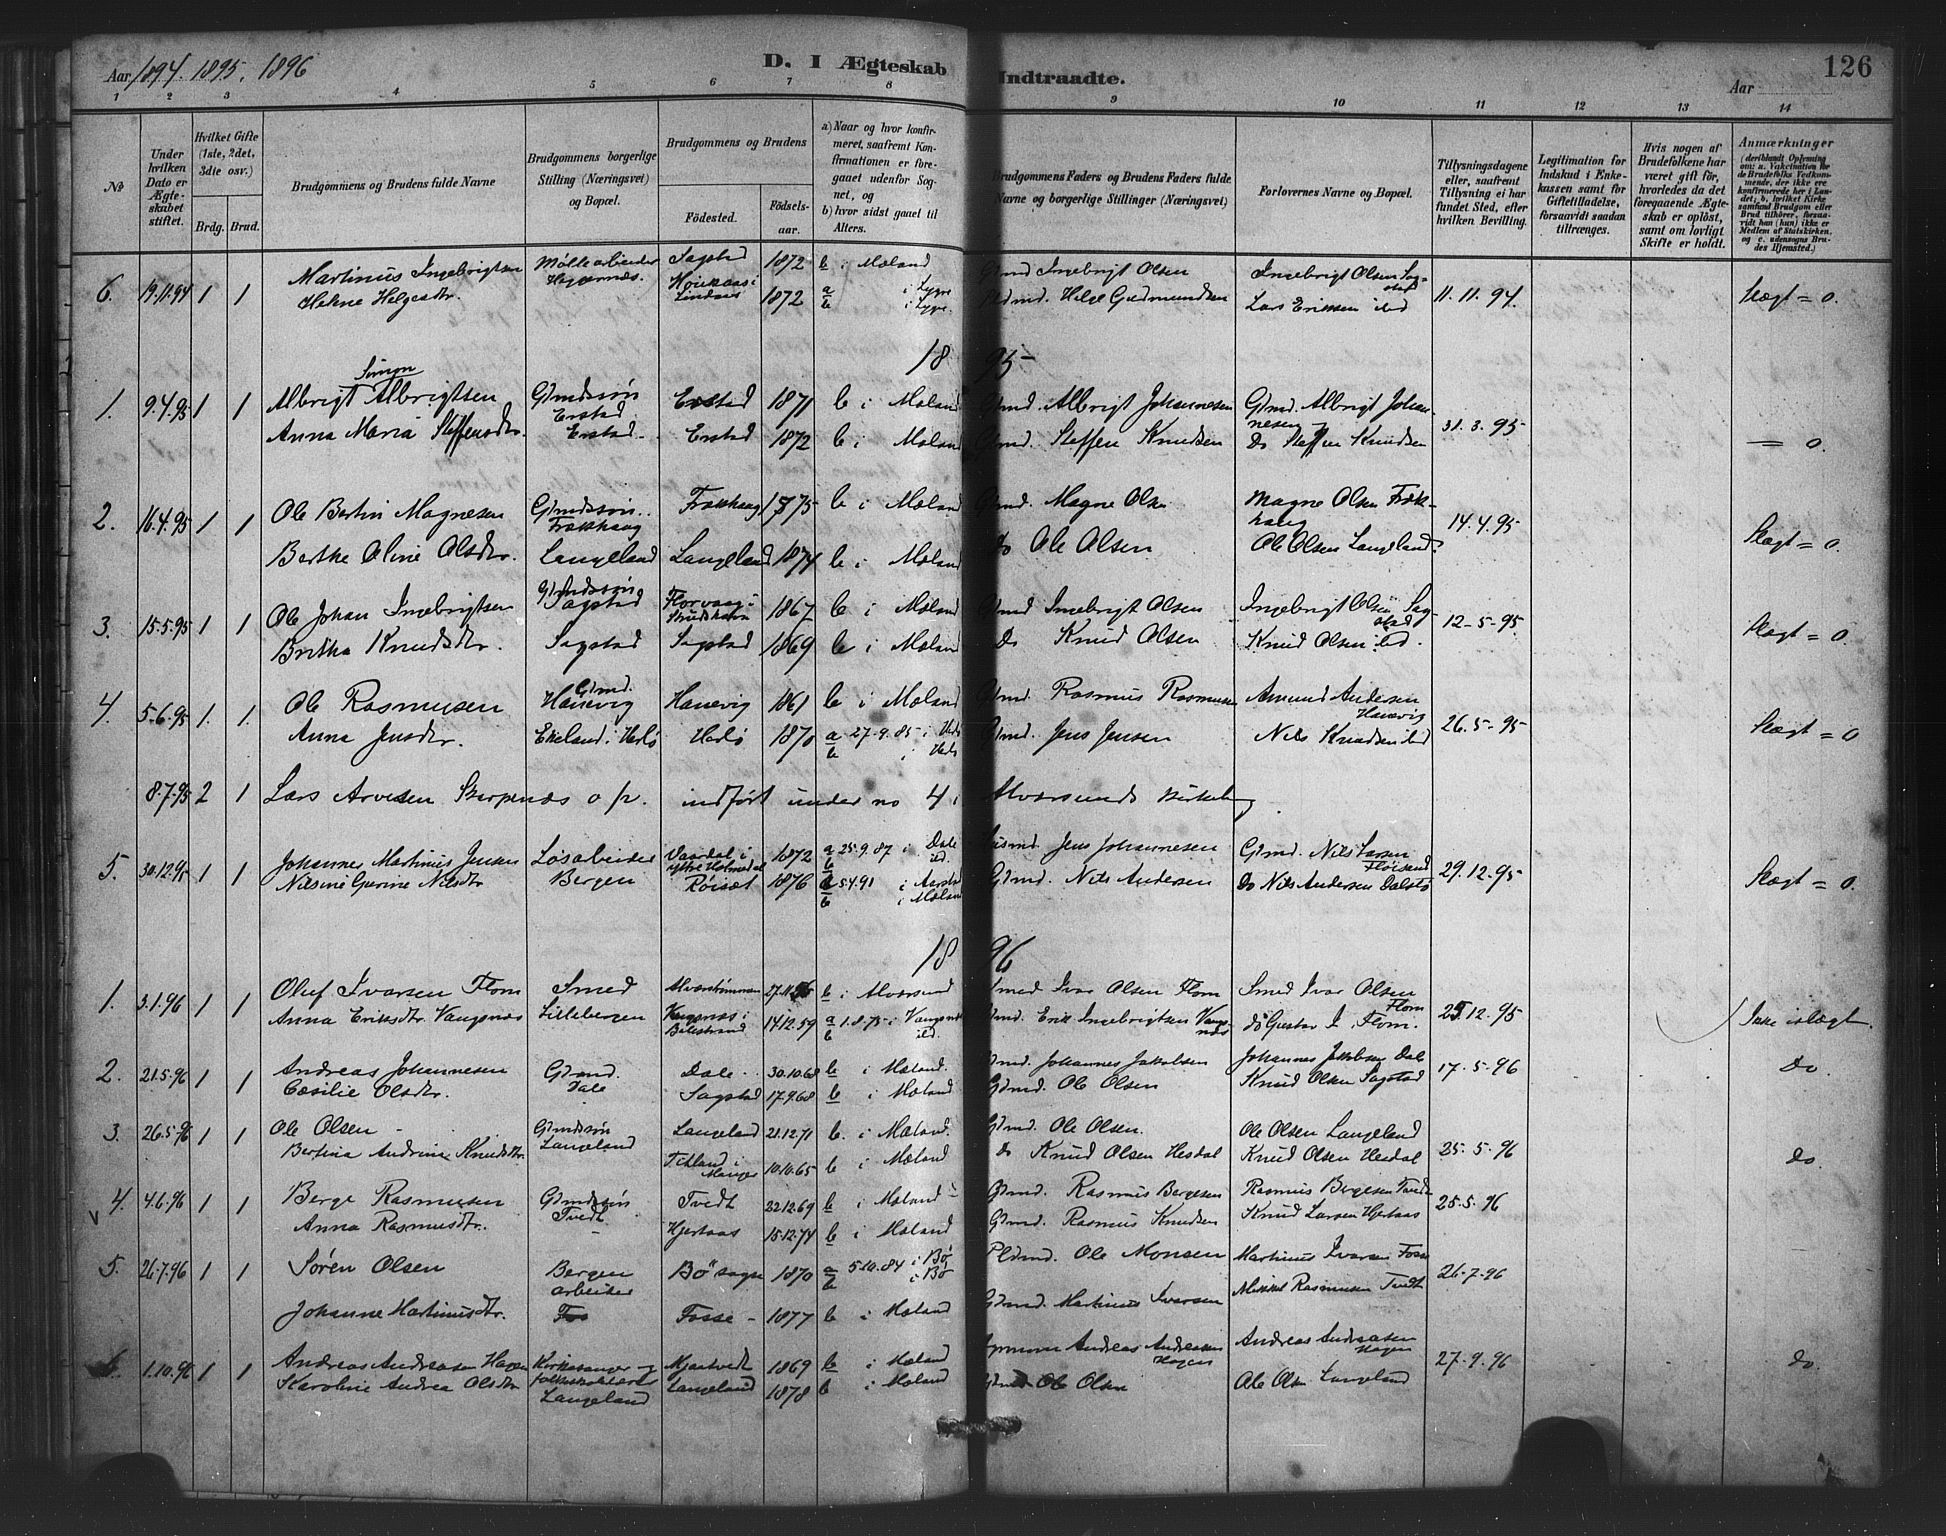 Aar 1894. 1895. 1896
D. I Ægteskab Indtraadte.
Aar
126
1 2 3 4 5 6 7 8 9 10 11 12 13 14
No
Under hvilken Dato er Ægteskabet stiftet.
Hvilket Gifte (1ste, 2det, 3die osv.)
Brdg. Brud.
Brudgommens og Brudens fulde Navne
Brudgommens borgerlige Stilling (Næringsvei) og Bopæl.
Brudgommens og Brudens
Fødested.
Fødselsaar.
a) Naar og hvor konfirmeret, saafremt Konfirmationen er foregaaet udenfor Sognet, og
b) hvor sidst gaaet til Alters.
Brudgommens Faders og Brudens Faders fulde Navne og borgerlige Stillinger (Næringsvei)
Forlovernes Navne og Bopæl.
Tillysningsdagene eller, saafremt Tillysning ei har fundet Sted, efter hvilken Bevilling.
Legitimation for Indskud i Enkekassen samt for Giftetilladelse, forsaavidt saadan tiltrænges.
Hvis nogen af Brudefolkene har været gift før, hvorledes da det foregaaende Ægteskab er opløst, samt om lovligt Skifte er holdt.
Anmærkninger
6. 19.11.94 1 1 Martinus Ingebrigtsen Møllearbeider Sagstad 1872 b i Mæland Gmd Ingebrigt Olsen Ingebrigt Olsen Sagstad 11.11.94. Slægt = 0.
Helene Helgesdtr. Lindaas 1872 a b i Lygre i Lygre Helge Gudmundsen Lars Eriksen ibd
1895
1. 9.4.95 1 1 Albrigt Simon Albrigtsen Gmdssøn Erstad Erstad 1871 b i Mæland Gmd. Albrigt Johannesen Gmd. Albrigt Johannesen 31.3.95 — 0.
Anna Maria Steffensdtr. Erstad Erstad 1872 b i Mæland Gmd. Steffen Knudsen Do Steffen Knudsen
2. 16.4.95 1 1 Ole Bertin Magnesen Gmdssøn Frækhaug Frækhaug 1875 b i Mæland Gmd. Magne Olsen Magne Olsen Frækhaug 14.4.95 Slægt = 0.
Berthe Oline Olsdtr. Langeland Langeland 1874 b i Mæland do Ole Olsen Ole Olsen Langeland
3. 15.5.95 1 1 Ole Johan Ingebrigtsen Gmdssøn Sagstad Florvaag 1867 b i Mæland Gmd Ingebrigt Olsen Ingebrigt Olsen Sagstad 12-5-95 Slægt = 0
Britha Knudsdtr. Sagstad Sagstad 1869 b i Mæland Do Knud Olsen Knud Olsen ibd.
4. 5-6.95 1. 1. Ole Rasmusen Gmd. Hanevig Hanevig 1861 b i Mæland Gmd. Rasmus Rasmusen Amund Andersen Hanevig 26.5-95 Slægt = 0
Anna Jensdtr. Ekeland i Herlø Herlø 1870 a 27-9.85 i Herlø b i Herlø Gmd. Jens Jensen Nils Knudsen ibd
8.7.95 2 1 Lars Arvesen Skarpenæs o fr. indført under no 4 i Alversunds Kirkebog
5. 30.12.95 1 1 Johannes Martinus Jensen Løsarbeider Vaardal i ytre Holmedal 1872 a 25.9.87 i Dale b ib. Husmd. Jens Johannesen Gmd. Nils Larsen 29.12.95 Slægt = 0.
Nilsine Gurine Nilsdtr Bergen Røisæt 1876 a 5.4.91 b i Mæland Gmd. Nils Andersen Do Nils Andersen Dalstø
1896
1. 3.1.96 1 1 Oluf Ivarsen Flom Smed Alverstrømmen b i Alversund Smed Ivar Olsen Flom Smed Ivar Olsen Flom 12.95 Ikke i slægt.
Anna Eriksdtr. Vangsnæs Lillebergen Vangsnæs i Balestrand 14.12.59 a 1.8.75 i Vangsnæs b ibd. Gmd. Erik Ingebrigtsen Vangsnæs do Gustav I. Flom.
2. 21.5.96 1 1 Andreas Johannesen Gmd. Dale Dale 30.10.68 b i Mæland. Gmd. Johannes Jakobsen Johannes Jakobsen Dale 17.5.96 Do.
Cæsilie Olsdtr. Sagstad 17.9.68 b i Mæland Gmd. Ole Olsen Knud Olsen Sagstad
3. 26.5.96 1 1 Ole Olsen Gmdssøn Langeland Langeland 21.12.71 b. i Mæland. Gmd. Ole Olsen. Ole Olsen Langeland 25.5.96 Do.
Bertina Andrine Knudsdtr. Titland i Manger 10.10.65 b i Mæland do Knud Olsen Hesdal Knud Olsen Hesdal
4. 4.6.96 1 1 Berge Rasmusen Gmdssøn Tvedt Tvedt 22.12.69 b i Mæland Gmd. Rasmus Bergesen Rasmus Bergesen Tvedt 25.5.96
Anna Rasmusdtr. Hjertaas 15.12.74 b i Mæland Gmd. Rasmus Knudsen Knud Larsen Hjertaas
5. 26.7.96 1 1 Søren Olsen Bergen arbeider Bø sogn 1870 a 5.10.84 i Bø b i Bø Pldmd. Ole Monsen Martinus Ivarsen Fosse 26-7-96
Johanne Martinusdtr. Fosse 1877 b i Mæland Gmd. Martinus Ivarsen Mikkel Rasmusen Tvedt
6. 1.10.96 1 1 Andreas Andreasen Hagen Kirkesanger og folkeskolelærer Mjaatvedt 1869 b i Mæland Andreas Andreasen Hagen Andreas Andreasen Hagen 27.9.96 do.
Karoline Andrea Olsdtr Langeland Langeland 1878 b i Mæland Gmd Ole Olsen Ole Olsen Langeland